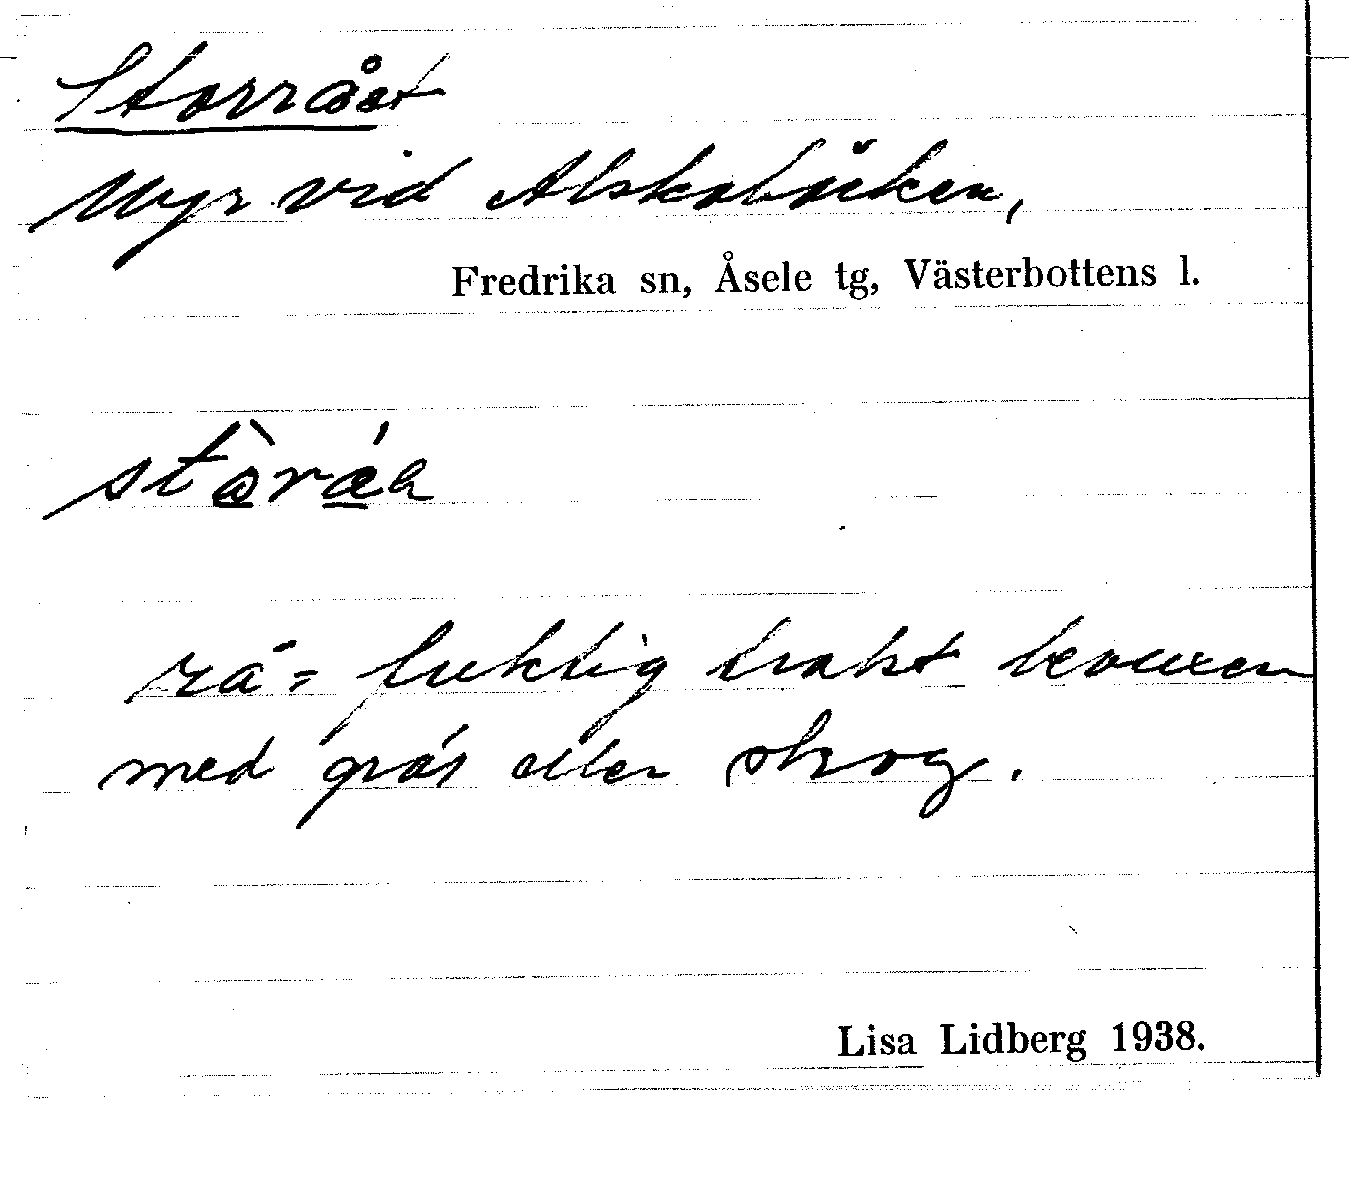 Storrået
Myr vid Alskabäcken,
Fredrika sn, Åsele tg, Västerbottens l.
rå = fuktig trakt bevuxen
med gräs eller skog.
Lisa Lidberg 1938.